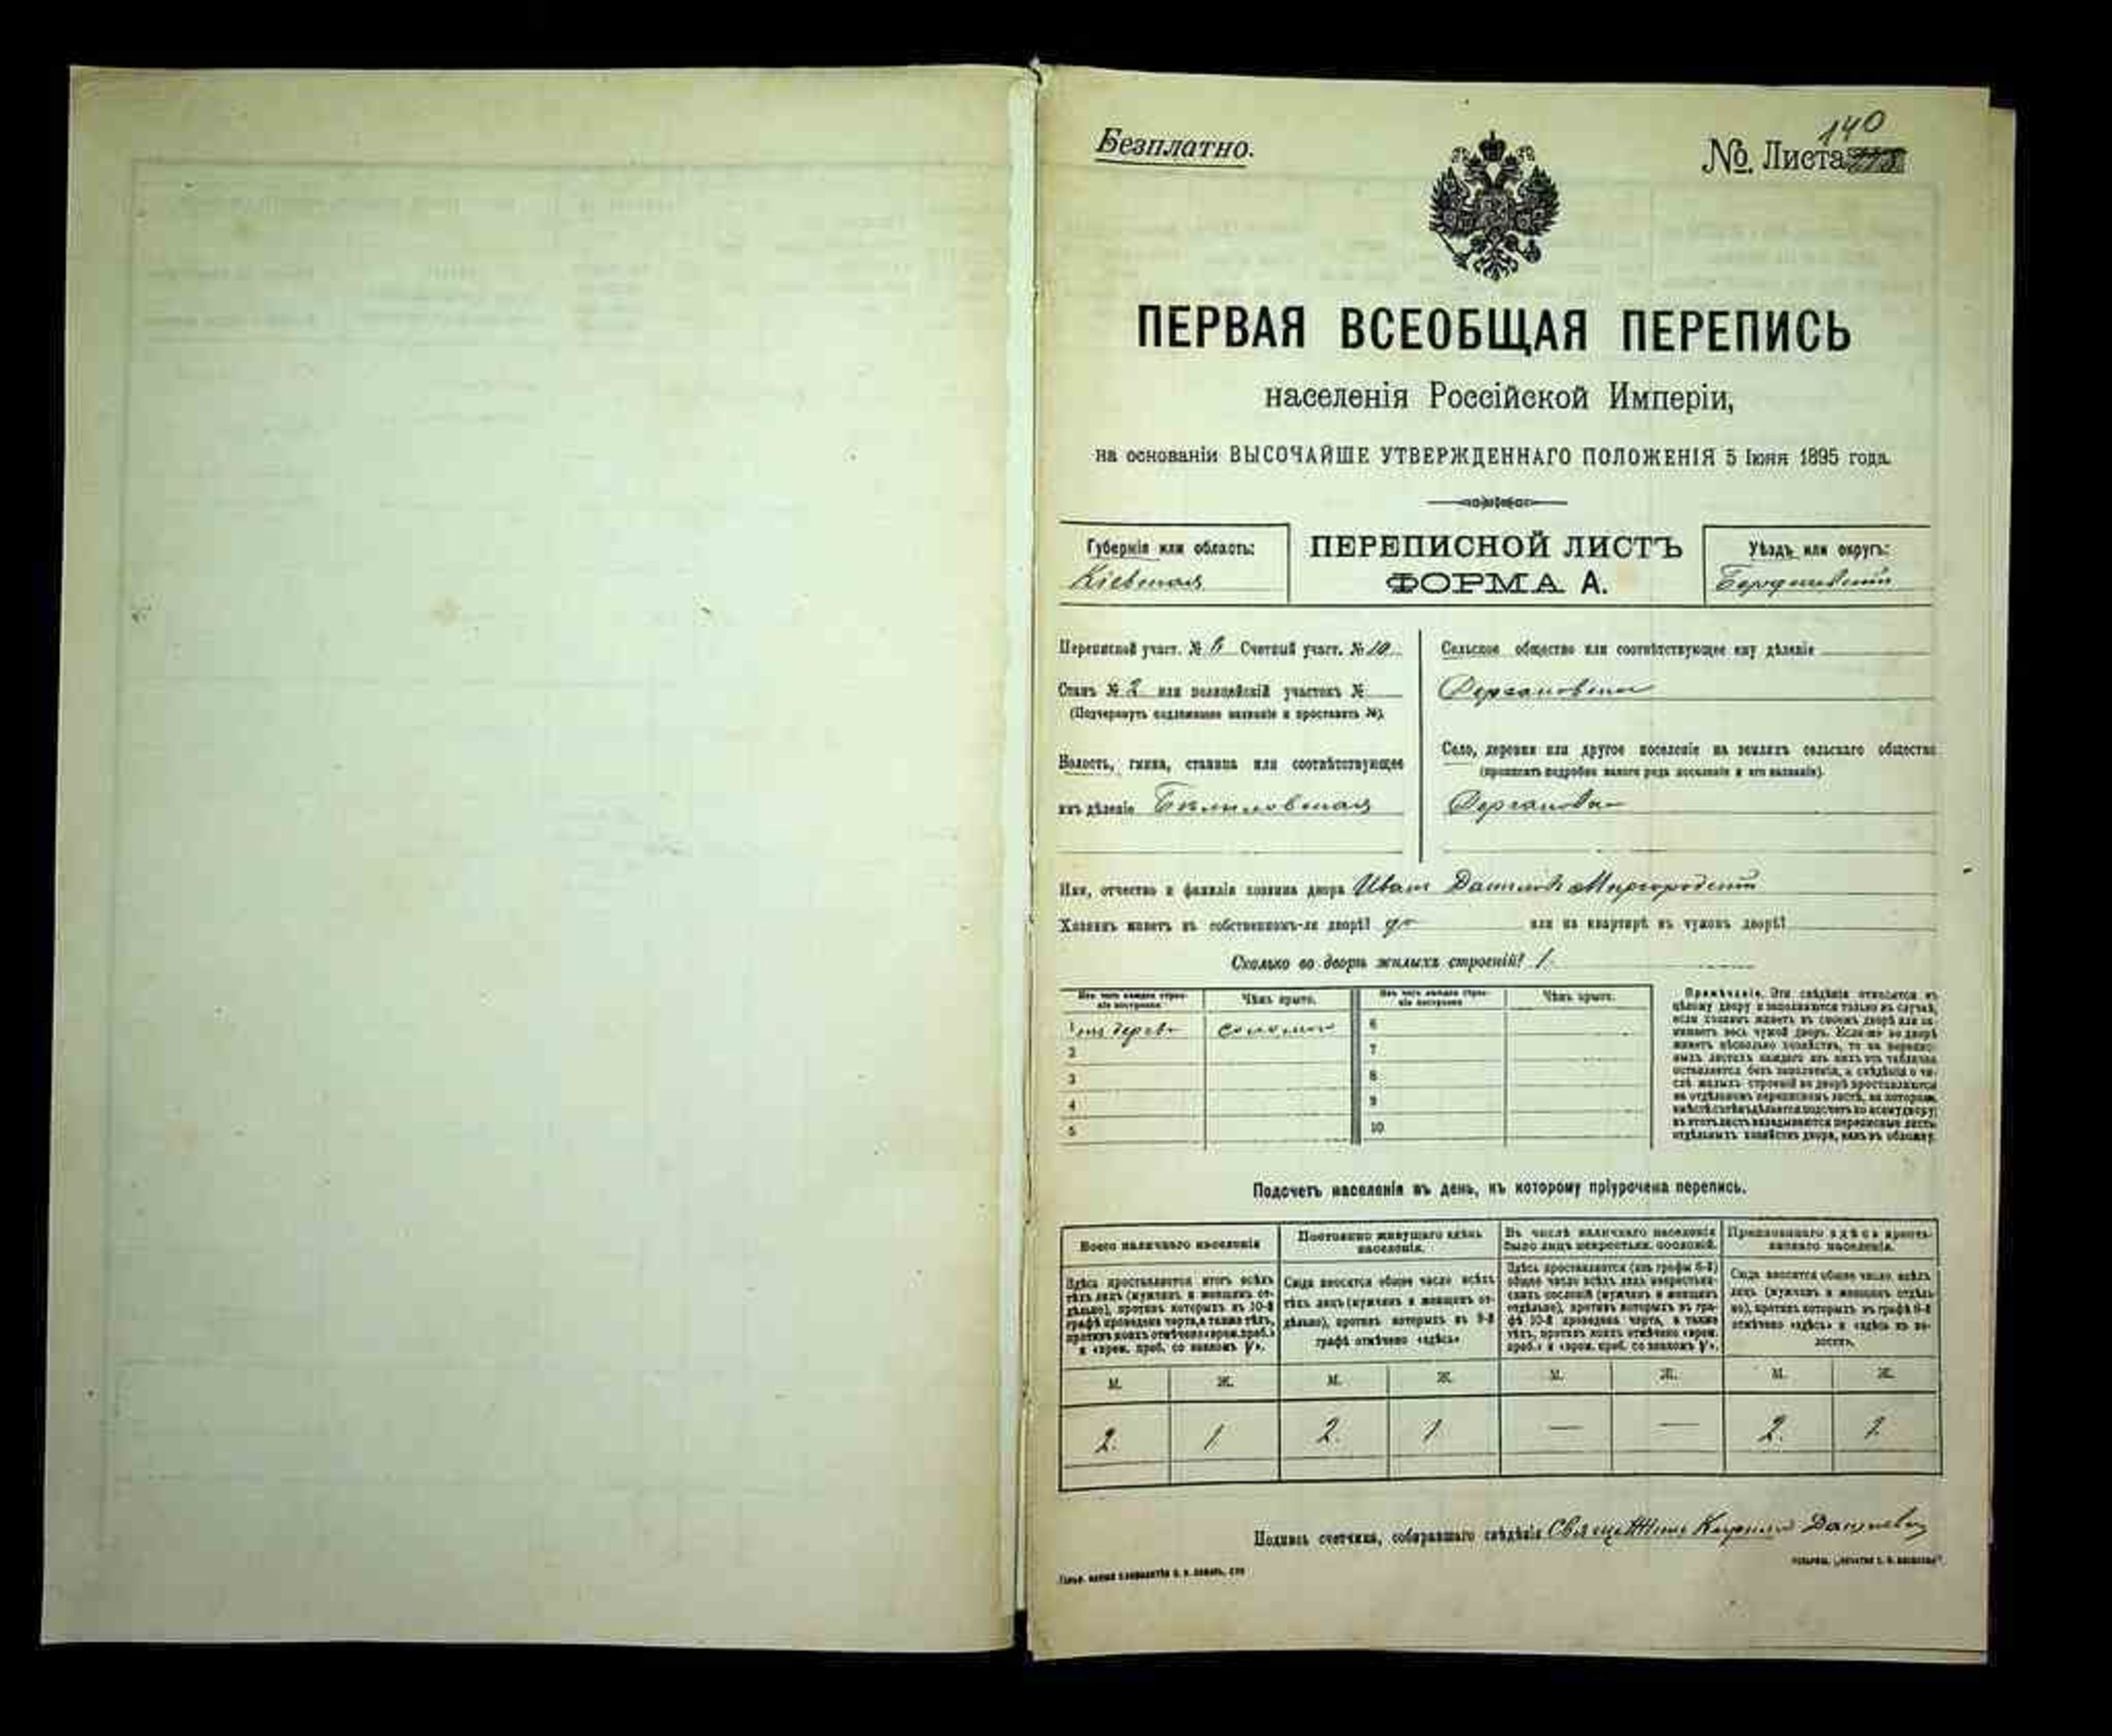 Безплатно.
140
№ Листа
ПЕРВАЯ ВСЕОБЩАЯ ПЕРЕПИСЬ
населенія Россійской Имперіи,
на основаніи ВЫСОЧАЙШЕ УТВЕРЖДЕННАГО ПОЛОЖЕНІЯ 5 Іюня 1895 года.
Губернія или область:
Кіевская
ПЕРЕПИСНОЙ ЛИСТЪ
ФОРМА А.
Уѣздъ или округъ:
Бердичевскій
Переписной участ. № Счетный участ. № 10
Станъ № 2 или полицейскій участокъ №
(Подчеркнуть надлежащее названіе и проставить №).
Волость, гмина, станица или соотвѣтствующее
имъ дѣленіе Бѣлиловская
Сельское общество или соотвѣтствующее ему дѣленіе
Село, деревня или другое поселеніе на земляхъ сельскаго общества
(прописать подробно какого рода поселеніе и его названіе).
Имя, отчество и фамилія хозяина двора Иванъ Даниловъ Миргородскій
Хозяинъ живетъ въ собственномъ-ли дворѣ? да или на квартирѣ въ чужомъ дворѣ?
Сколько во дворѣ жилыхъ строеній? 1
Изъ чего каждое строеніе построено
Чѣмъ крыто.
Изъ чего каждое строеніе построено
Чѣмъ крыто.
1 изъ дерева соломою 6
2 7
3 8
4 9
5 10
Примѣчаніе. Эти свѣдѣнія относятся къ
цѣлому двору и заполняются только въ случаѣ,
если хозяинъ живетъ въ своемъ дворѣ или за-
нимаетъ весь чужой дворъ. Если-же во дворѣ
живетъ нѣсколько хозяйствъ, то на перепис-
ныхъ листахъ каждаго изъ нихъ эта табличка
оставляется безъ заполненія, а свѣдѣнія о чи-
слѣ жилыхъ строеній во дворѣ проставляются
на отдѣльномъ переписномъ листѣ, на которомъ
вмѣстѣ съ тѣмъ дѣлается подсчетъ по всему двору;
въ этотъ листъ вкладываются переписные листы
отдѣльныхъ хозяйствъ двора, какъ въ обложку.
Подсчетъ населенія въ день, къ которому пріурочена перепись.
Всего наличнаго населенія
Постоянно живущаго здѣсь
населенія.
Въ числѣ наличнаго населенія
было лицъ некрестьян. сословій.
Приписаннаго здѣсь кресть-
янскаго населенія.
Здѣсь проставляется итогъ всѣхъ
тѣхъ лицъ (мужчинъ и женщинъ от-
дѣльно), противъ которыхъ въ 10-й
графѣ проведена черта, а также тѣхъ,
противъ коихъ отмѣчено «врем. преб.»
и «врем. преб. со знакомъ V».
Сюда вносится общее число всѣхъ
тѣхъ лицъ (мужчинъ и женщинъ от-
дѣльно), противъ которыхъ въ 9-й
графѣ отмѣчено «здѣсь»
Здѣсь проставляется (изъ графы 6-й)
общее число всѣхъ лицъ некрестьян-
скихъ сословій (мужчинъ и женщинъ
отдѣльно), противъ которыхъ въ гра-
фѣ 10-й проведена черта, а также
тѣхъ, противъ коихъ отмѣчено «врем.
преб.» и «врем. преб. со знакомъ V».
Сюда вносится общее число всѣхъ
лицъ (мужчинъ и женщинъ отдѣль-
но), противъ которыхъ въ графѣ 8-й
отмѣчено «здѣсь» и «здѣсь въ во-
лости».
М. Ж. М. Ж. М. Ж. М. Ж.
2. 1 2. 1 — — 2. 1
Подпись счетчика, собиравшаго свѣдѣнія Кириллъ